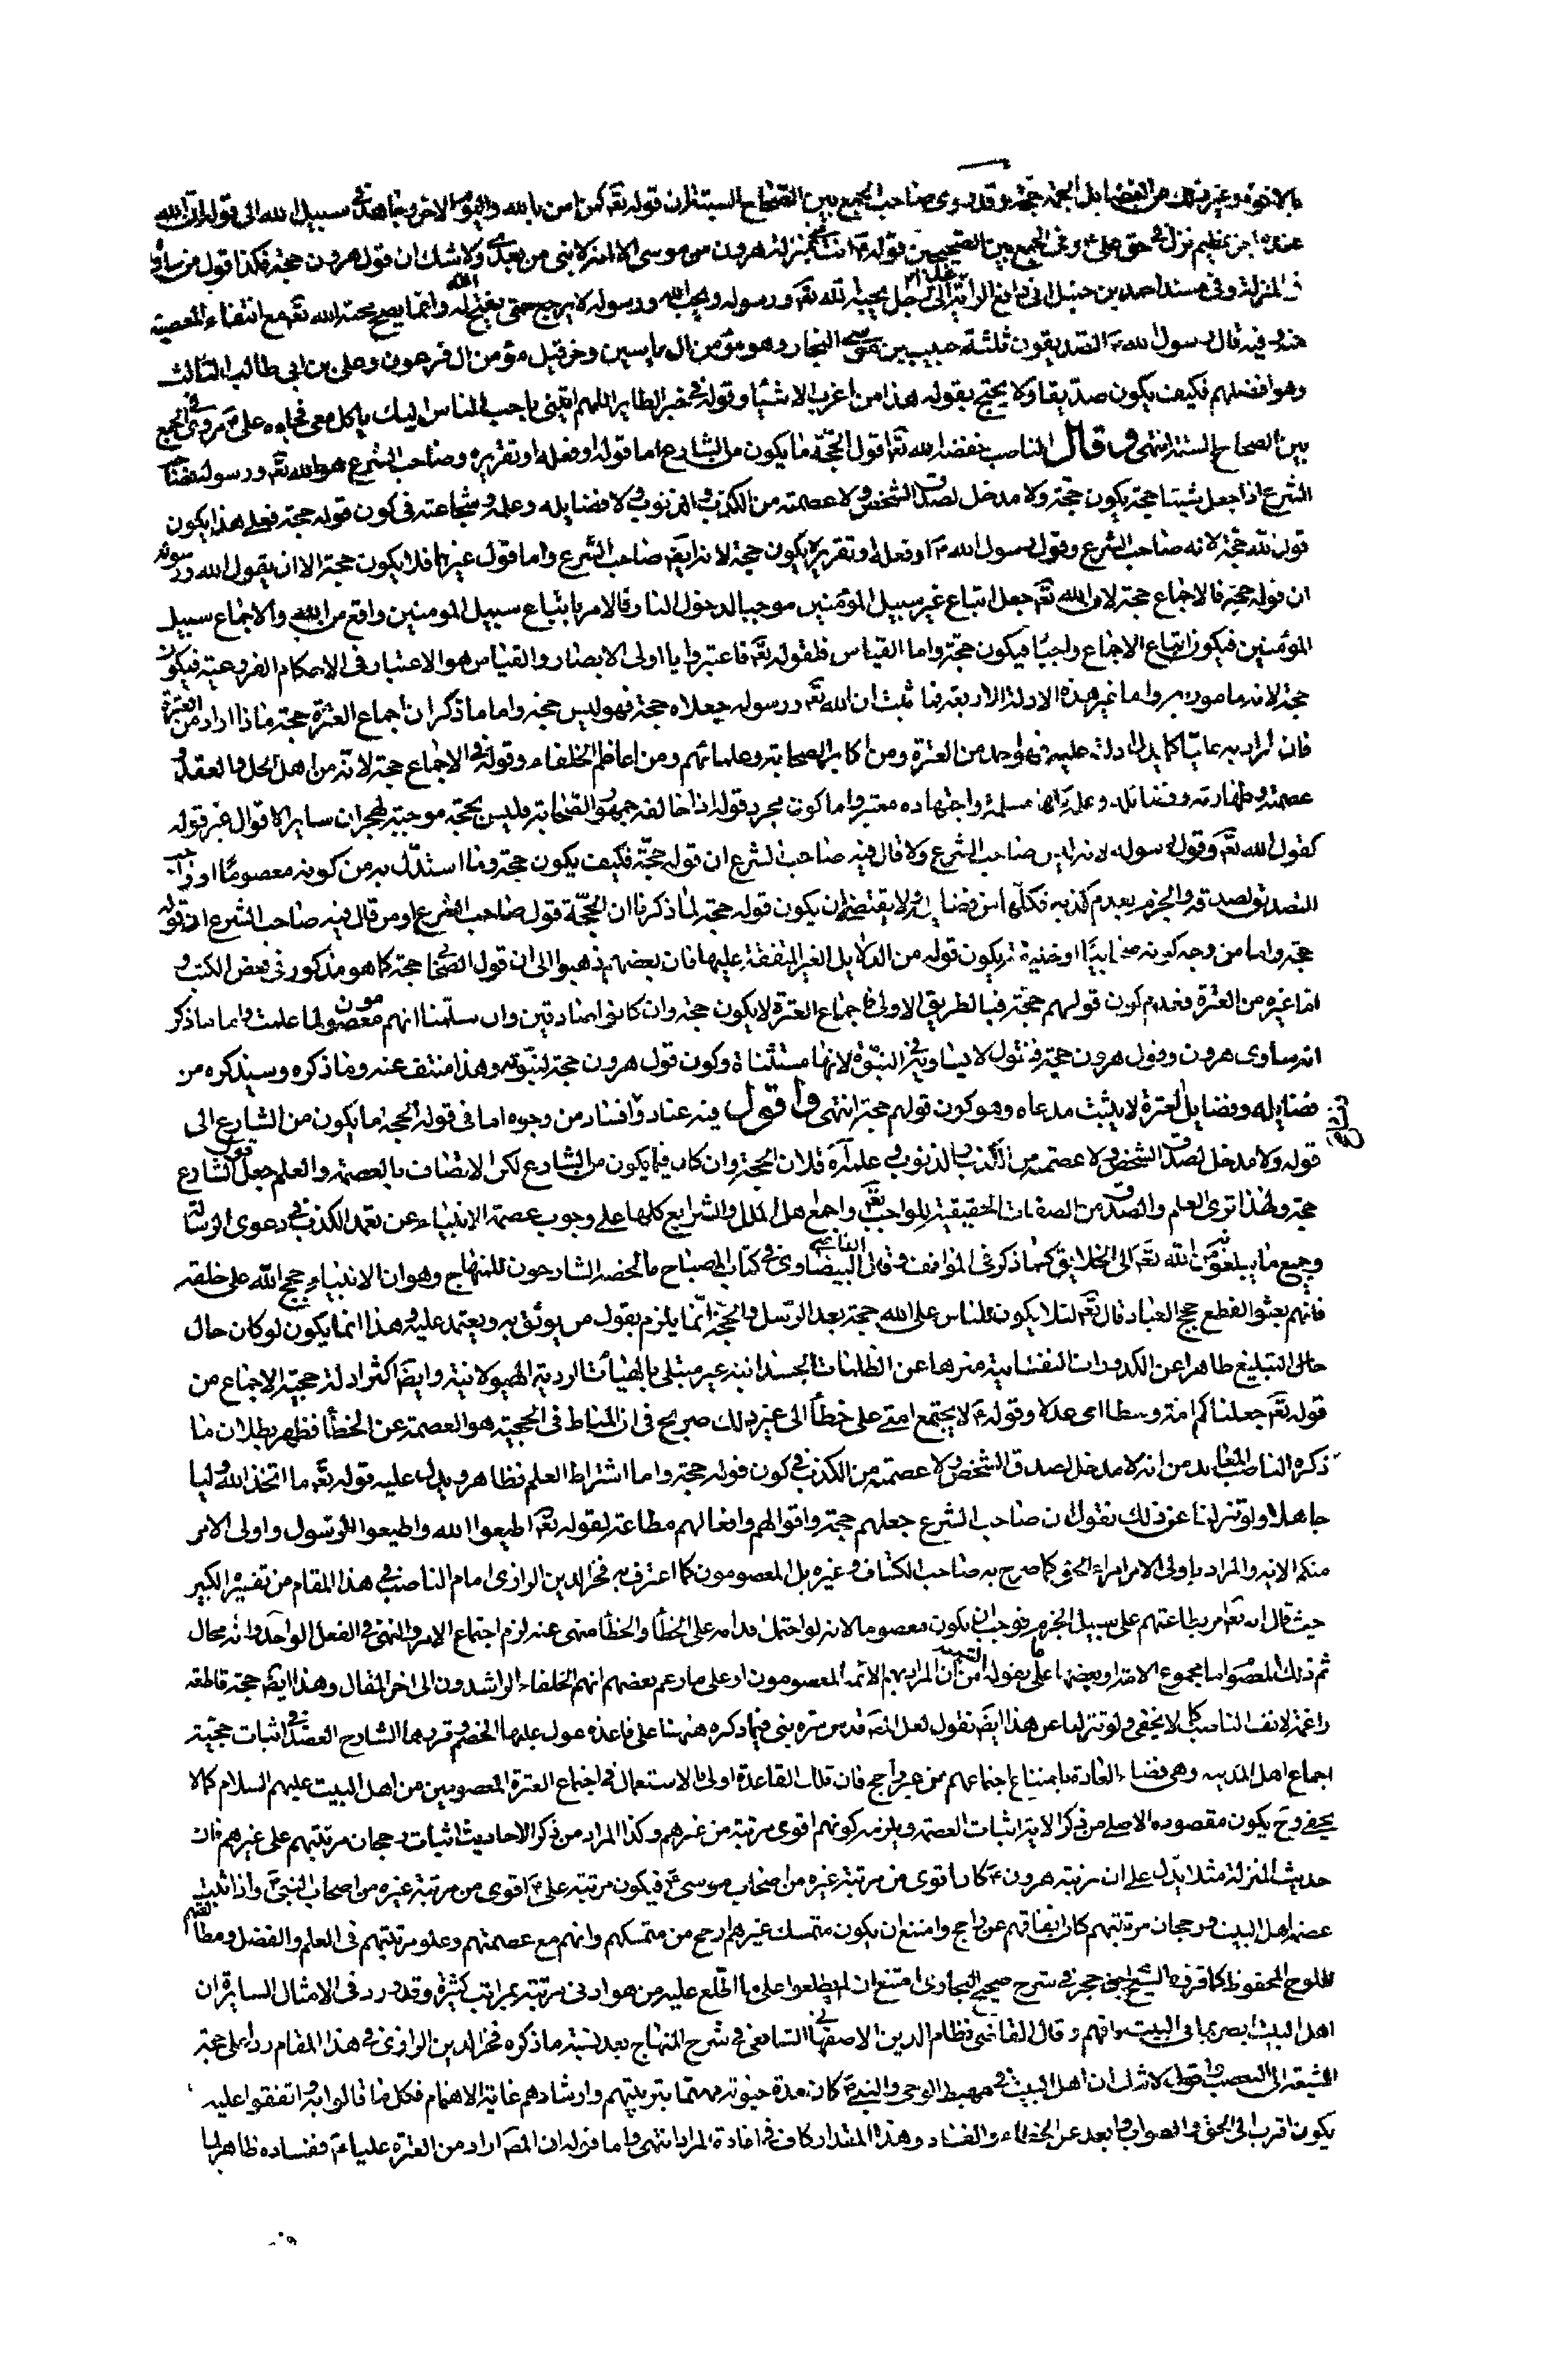 بالاخوة وغير ذلك من الفضايل الجمة حجة وقد روى صاحب الجمع بين الصحاح الستة ان قوله تعه كمن امن بالله واليوم الاخر وجاهد في سبيل الله الى قوله ان الله
عنده اجر عظيم نزل في حق علي ع وفي الجمع بين الصحيحين قوله ع انت مني بمنزلة هرون من موسى الا انه لا نبي من بعدي ولا شك ان قول هرون حجة فكذا قول من ساواه
في المنزلة وفي مسند احمد بن حنبل اني دافع الراية غدا الى رجل يحبه الله تعه ورسوله ويحب الله ورسوله لا يرجع حتى يفتح الله له وانما يصح محبة الله تعه مع انتفاء المعصية
عنه وفيه قال رسول الله ص الصديقون ثلثة حبيب بن موسى النجار وهو مؤمن ال ياسين وخرقيل مؤمن ال فرعون وعلي بن ابي طالب الثالث
وهو افضلهم فكيف يكون صديقا ولا يحتج بقوله هذا من اغرب الاشيا وقوله في خبر الطاير اللهم ائتني باحب الناس اليك ياكل معي فجاءه علي ع مروي في الجمع
بين الصحاح الستة انتهى وقال الناصب خفضه الله تعه اقول الحجة ما يكون من الشارع اما قوله او فعله او تقريره وصاحب الشرع هو الله تعه ورسوله فصاحب
الشرع اذا جعل شيئا حجة يكون حجة ولا مدخل لصدق الشخص ولا عصمته من الكذب والذنوب ولا فضايله وعلمه وشجاعته في كون قوله حجة فعلى هذا يكون
قول الله حجة لانه صاحب الشرع وقول رسول الله ص او فعله او تقريره يكون حجة لانه ايض صاحب الشرع واما قول غيرهما فلا يكون حجة الا ان يقول الله ورسوله
ان قوله حجة فالاجماع حجة لان الله تعه جعل اتباع غير سبيل المؤمنين موجبا لدخول النار فالامر باتباع سبيل المومنين واقع من الله والاجماع سبيل
المؤمنين فيكون اتباع الاجماع واجبا فيكون حجة واما القياس فلقوله تعه فاعتبروا يا اولى الابصار والقياس هو الاعتبار في الاحكام الفرعية فيكون
حجة لانه مامور به واما غير هذه الادلة الاربعة فما ثبت ان الله تعه ورسوله جعلاه حجة فهو ليس حجة واما ما ذكر ان اجماع العترة حجة ماذا اراد من العترة
فان اراد به عليا كما يدل ادلته عليه فهو واحد من العترة ومن اكابر الصحابة وعلمائهم ومن اعاظم الخلفاء وقوله في الاجماع حجة لانه من اهل الحل والعقد و
عصمته وطهارته وفضائله وعلمه كلها مسلمة واجتهاده معتبر واما كون مجرد قوله اذا خالفه جمهور الصحابة فليس بحجة موجبة لهجران ساير الاقوال غير قوله
كقول الله تعه وقول رسوله لانه ليس صاحب الشرع ولا قال فيه صاحب الشرع ان قوله حجة فكيف يكون حجة وما استدل به من كونه معصوما او واجب
التصديق لصدقه والجزم بعدم كذبه فكلها من فضايله ولا يقتضي ان يكون قوله حجة لما ذكرنا ان الحجة قول صاحب الشرع او من قال فيه صاحب الشرع ان قوله
حجة واما من وجه كونه صحابيا او خليفة يكون قوله من الدلايل الغير المتفقة عليها فان بعضهم ذهبوا الى ان قول الصحابي حجة كما هو مذكور في بعض الكتب و
اما غيره من العترة فعدم كون قولهم حجة فبالطريق الاولى فاجماع العترة لا يكون حجة وان كانوا صادقين وان سلمنا انهم معصومون لما علمت واما ما ذكر
انه ساوى هرون وقول هرون حجة فنقول لا يساويه في النبوة لانها مستثناة وكون قول هرون حجة لنبوته وهذا منتف عنه وما ذكره وسيذكره من
فضايله وفضايل العترة لا يثبت مدعاه وهو كون قولهم حجة انتهى واقول فيه عناد وافساد من وجوه اما في قوله الحجة ما يكون من الشارع الى
قوله ولا مدخل لصدق الشخص ولا عصمته من الكذب والذنوب وعلمه آه فلان الحجة وان كان فيما يكون من الشارع لكن الاتصاف بالعصمة والعلم جعل قول الشارع
حجة ولهذا ترى العلم والصدق من الصفات الحقيقية للواجب تعه واجمع اهل الملل والشرايع كلها على وجوب عصمة الانبياء عن تعمد الكذب في دعوى الرسالة
وجميع ما يبلغونه من الله تعه الى الخلايق كما ذكر في المواقف وقال القاضي البيضاوي في كتاب المصباح ما لخصه الشارحون للمنهاج وهو ان الانبياء حجج الله على خلقه
فانهم بعثوا لقطع حجج العباد قال تعه لئلا يكون للناس على الله حجة بعد الرسل والحجة انما يلزم بقول من يوثق به ويعتمد عليه وهذا انما يكون لو كان حال
حال التبليغ طاهرا عن الكدورات النفسانية منزها عن الظلمات الجسدانية غير مبتلى بالهيئات الردية الهيولانية وايض اكثر ادلة حجية الاجماع من
قوله تعه جعلناكم امة وسطا اي عدلا وقوله ع لا يجتمع امتي على خطأ الى غير ذلك صريح في ان المناط في الحجية هو العصمة عن الخطأ فظهر بطلان ما
ذكره الناصب المعاند من انه لا مدخل لصدق الشخص ولا عصمته من الكذب في كون قوله حجة واما اشتراط العلم فظاهر ويدل عليه قوله تعه ما اتخذ الله وليا
جاهلا ولو تنزلنا عن ذلك نقول ان صاحب الشرع جعلهم حجة واقوالهم وافعالهم مطاعة لقوله تعه اطيعوا الله واطيعوا الرسول واولى الامر
منكم الاية والمراد باولى الامر امراء الحق كما صرح به صاحب الكشاف وغيره بل المعصومون كما اعترف به فخر الدين الرازي امام الناصب في هذا المقام من تفسيره الكبير
حيث قال انه تعه امر بطاعتهم على سبيل الجزم فوجب ان يكون معصوما لانه لو احتمل قدامه على الخطأ والخطأ منهى عنه لزم اجتماع الامر والنهي في الفعل الواحد وانه محال
ثم ذلك المعصوم اما مجموع الامة او بعضها على ما يقوله الشيعة من ان المراد بهم الائمة المعصومون او على ما زعم بعضهم انهم الخلفاء الراشدون الى اخر المقال وهذا ايض حجة قاطعة
راغمة لانف الناصب كما لا يخفى ولو تنزلنا عن هذا ايض نقول لعل المص قدس سره بنى فيما ذكره ههنا على قاعدة عول عليها الخصم وقررها الشارح العضد في اثبات حجية
اجماع اهل المدينة وهي قضاء العادة بامتناع اجماعهم من غير راجح فان تلك القاعدة اولى بالاستعمال في اجماع العترة المعصومين من اهل البيت عليهم السلام كما لا
يخفى وح يكون مقصوده الاصلي من ذكر الاية اثبات العصمة ويلزمه كونهم اقوى مرتبة من غيرهم وكذا المراد من ذكر الاحاديث اثبات رجحان مرتبتهم على غيرهم فان
حديث المنزلة مثلا يدل على ان مرتبة هرون ع كان اقوى من مرتبة غيره من اصحاب موسى ع فيكون مرتبة علي ع اقوى من مرتبة غيره من اصحاب النبي ص واذا ثبت
عصمة اهل البيت ورجحان مرتبتهم كان اتفاقهم عن راجح وامتنع ان يكون متمسك غيرهم ارجح من متمسكهم وانهم مع عصمتهم وعلو مرتبتهم في العلم والفضل ومطالعتهم
للوح المحفوظ كما قرره الشيخ ابن حجر في شرح صحيح البخاري امتنع ان لم يطلعوا على ما اطلع عليه من هو ادنى مرتبة بمراتب كثيرة وقد ورد في الامثال السايرة ان
اهل البيت ابصر بما في البيت وافهم وقال القاضي نظام الدين الاصفهاني الشافعي في شرح المنهاج بعد نسبة ما ذكره فخر الدين الرازي في هذا المقام ردا على حجة
الشيعة الى التعصب واقول لا شك ان اهل البيت في مهبط الوحي والنبي ص كان مدة حيوته مهتما بتربيتهم وارشادهم غاية الاهتمام فكل ما قالوا به واتفقوا عليه
يكون اقرب الى الحق والصواب وابعد عن الخطاء والفساد وهذا المقدار كاف في افادة المراد انتهى واما قوله ان المص اراد من العترة عليا ع ففساده ظاهر لما